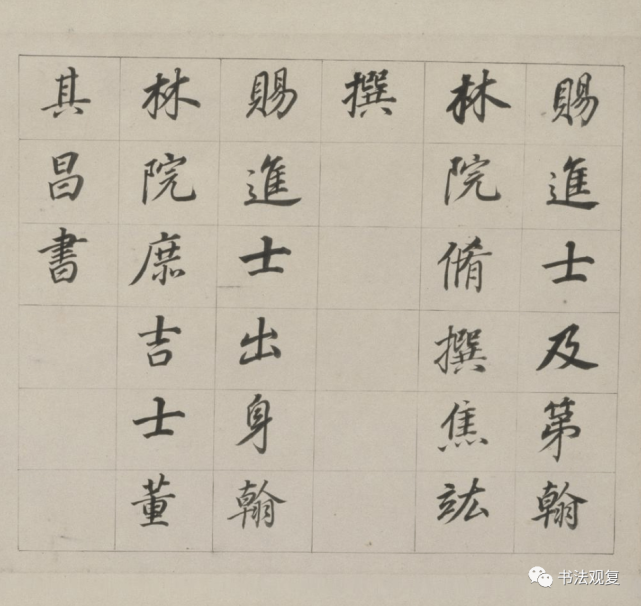 賜進士及第翰
林院脩撰焦竑
撰
賜進士出身翰
林院庶吉士董
其昌書
书法观复